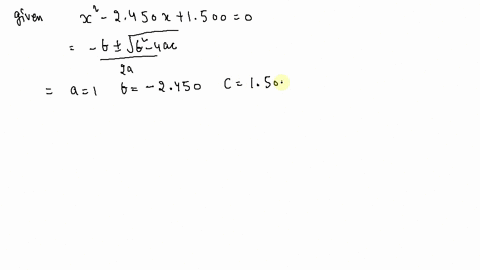 given x² - 2.450x + 1.500 = 0
= -b ± √b² - 4ac / 2a
= a = 1 b = -2.450 c = 1.50